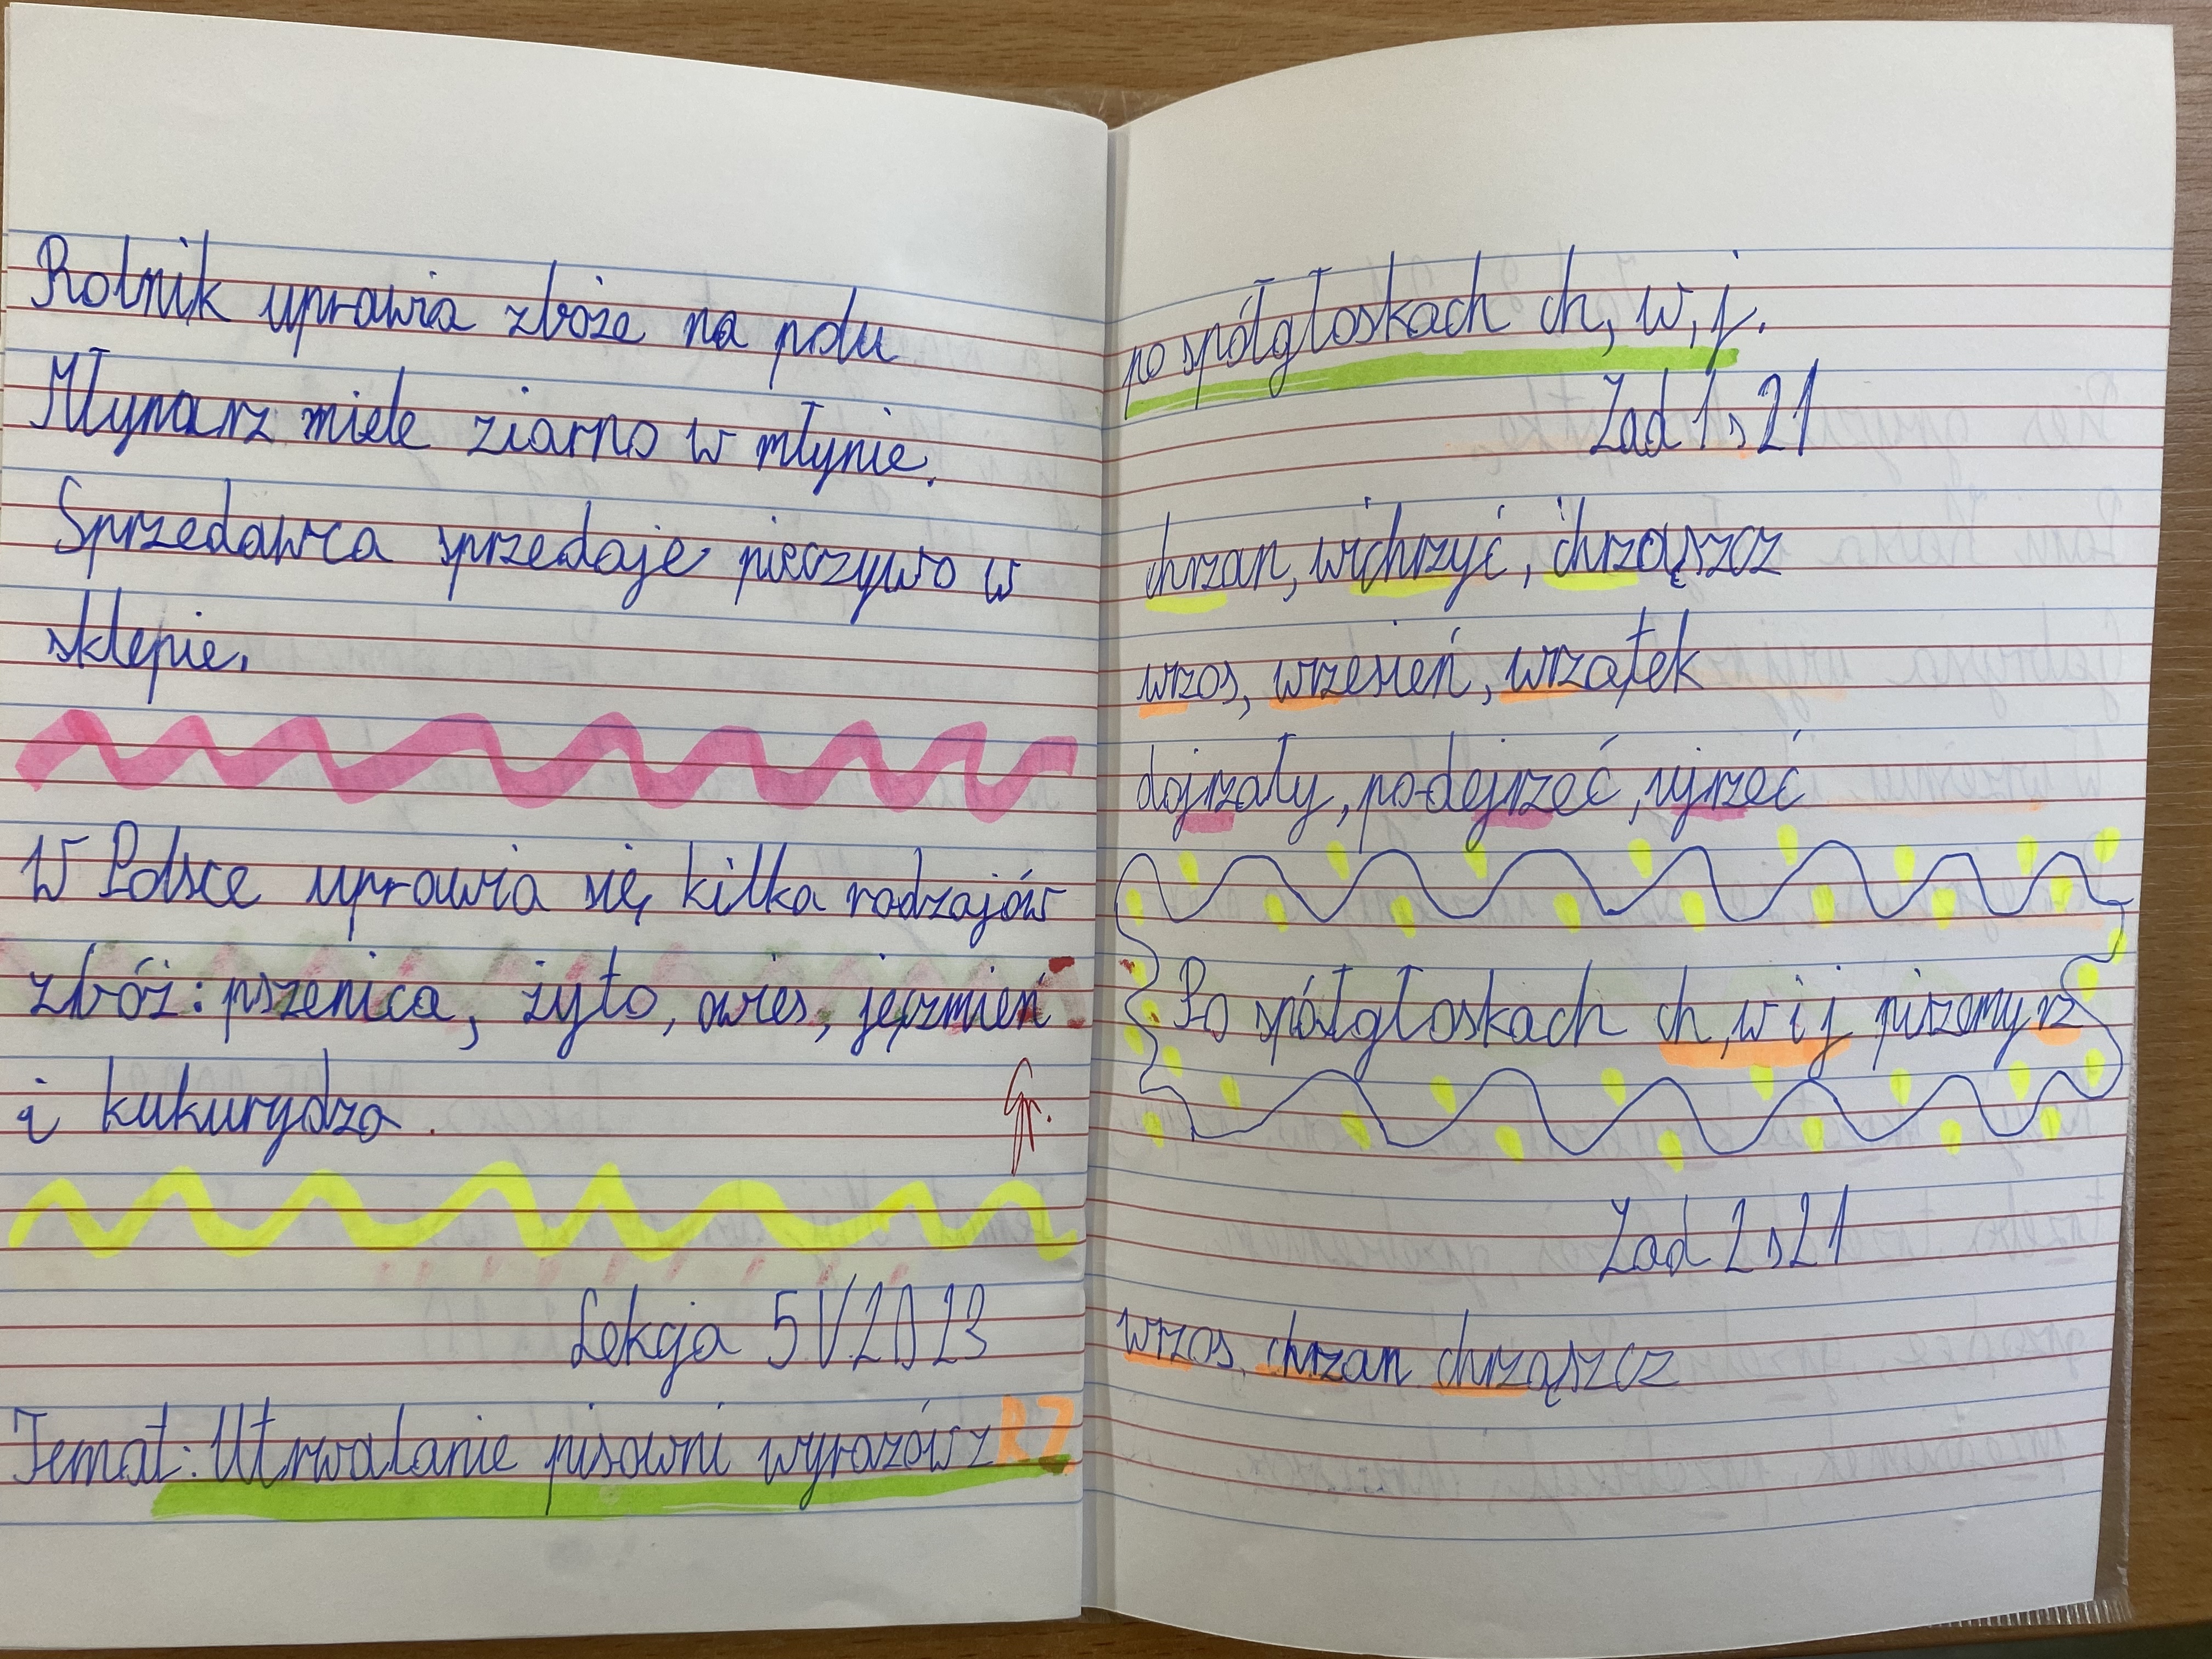 Rolnik uprawia zboże na polu
Młynarz miele ziarno w młynie.
Sprzedawca sprzedaje pieczywo w
sklepie.
W Polsce uprawia się kilka rodzajów
zbóż: pszenica, żyto, owies, jęczmień
i kukurydza.
Gr.
Lekcja 5 V.2023
Temat: Utrwalanie pisowni wyrazów z RZ
po spółgłoskach ch, w, j.
Zad 1 s 21
chrzan, wichrzyć, chrząszcz
wrzos, wrzesień, wrzątek
dojrzały, podejrzeć, ujrzeć
Po spółgłoskach ch, w i j piszemy rz
Zad 2 s 21
wrzos, chrzan chrząszcz